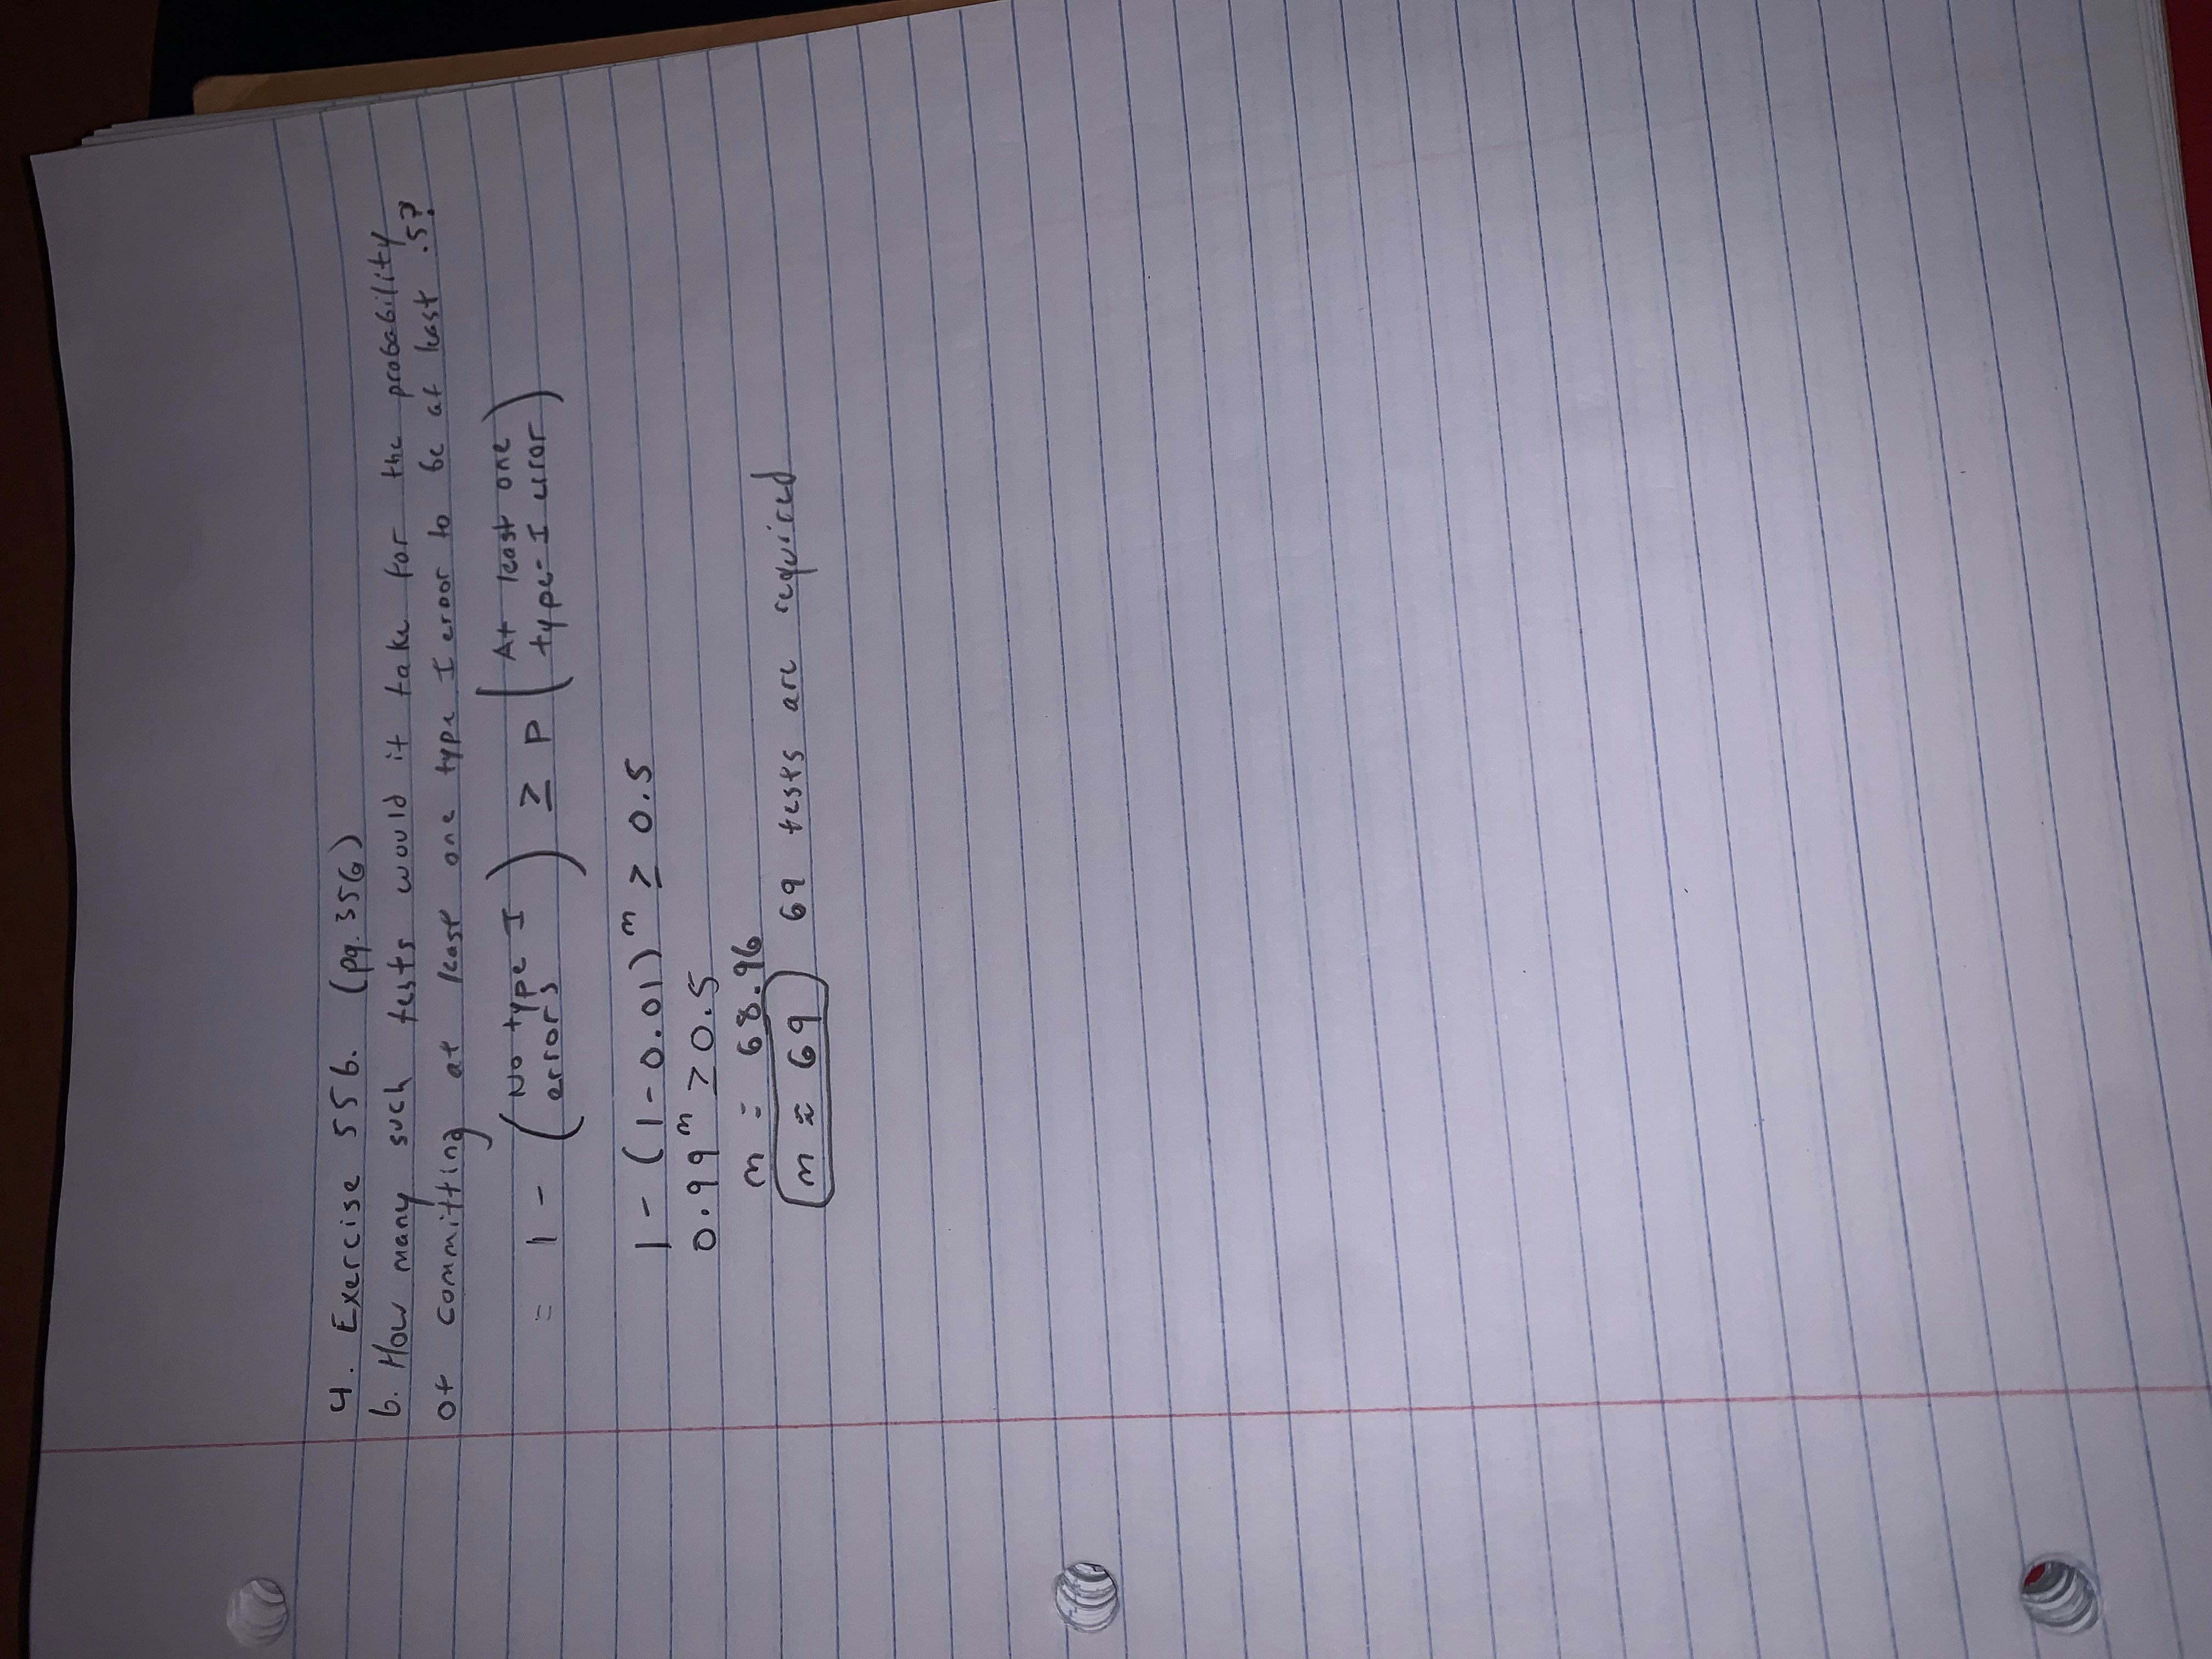 4. Exercise 556. (pg. 356)
b. How many such tests would it take for the probability
of committing at least one type I error to be at least .5?
= 1 - (No type I errors) ≥ P (At least one type-I error)
1 - (1-0.01)^m ≥ 0.5
0.99^m ≥ 0.5
m = 68.96
m ≈ 69 69 tests are required